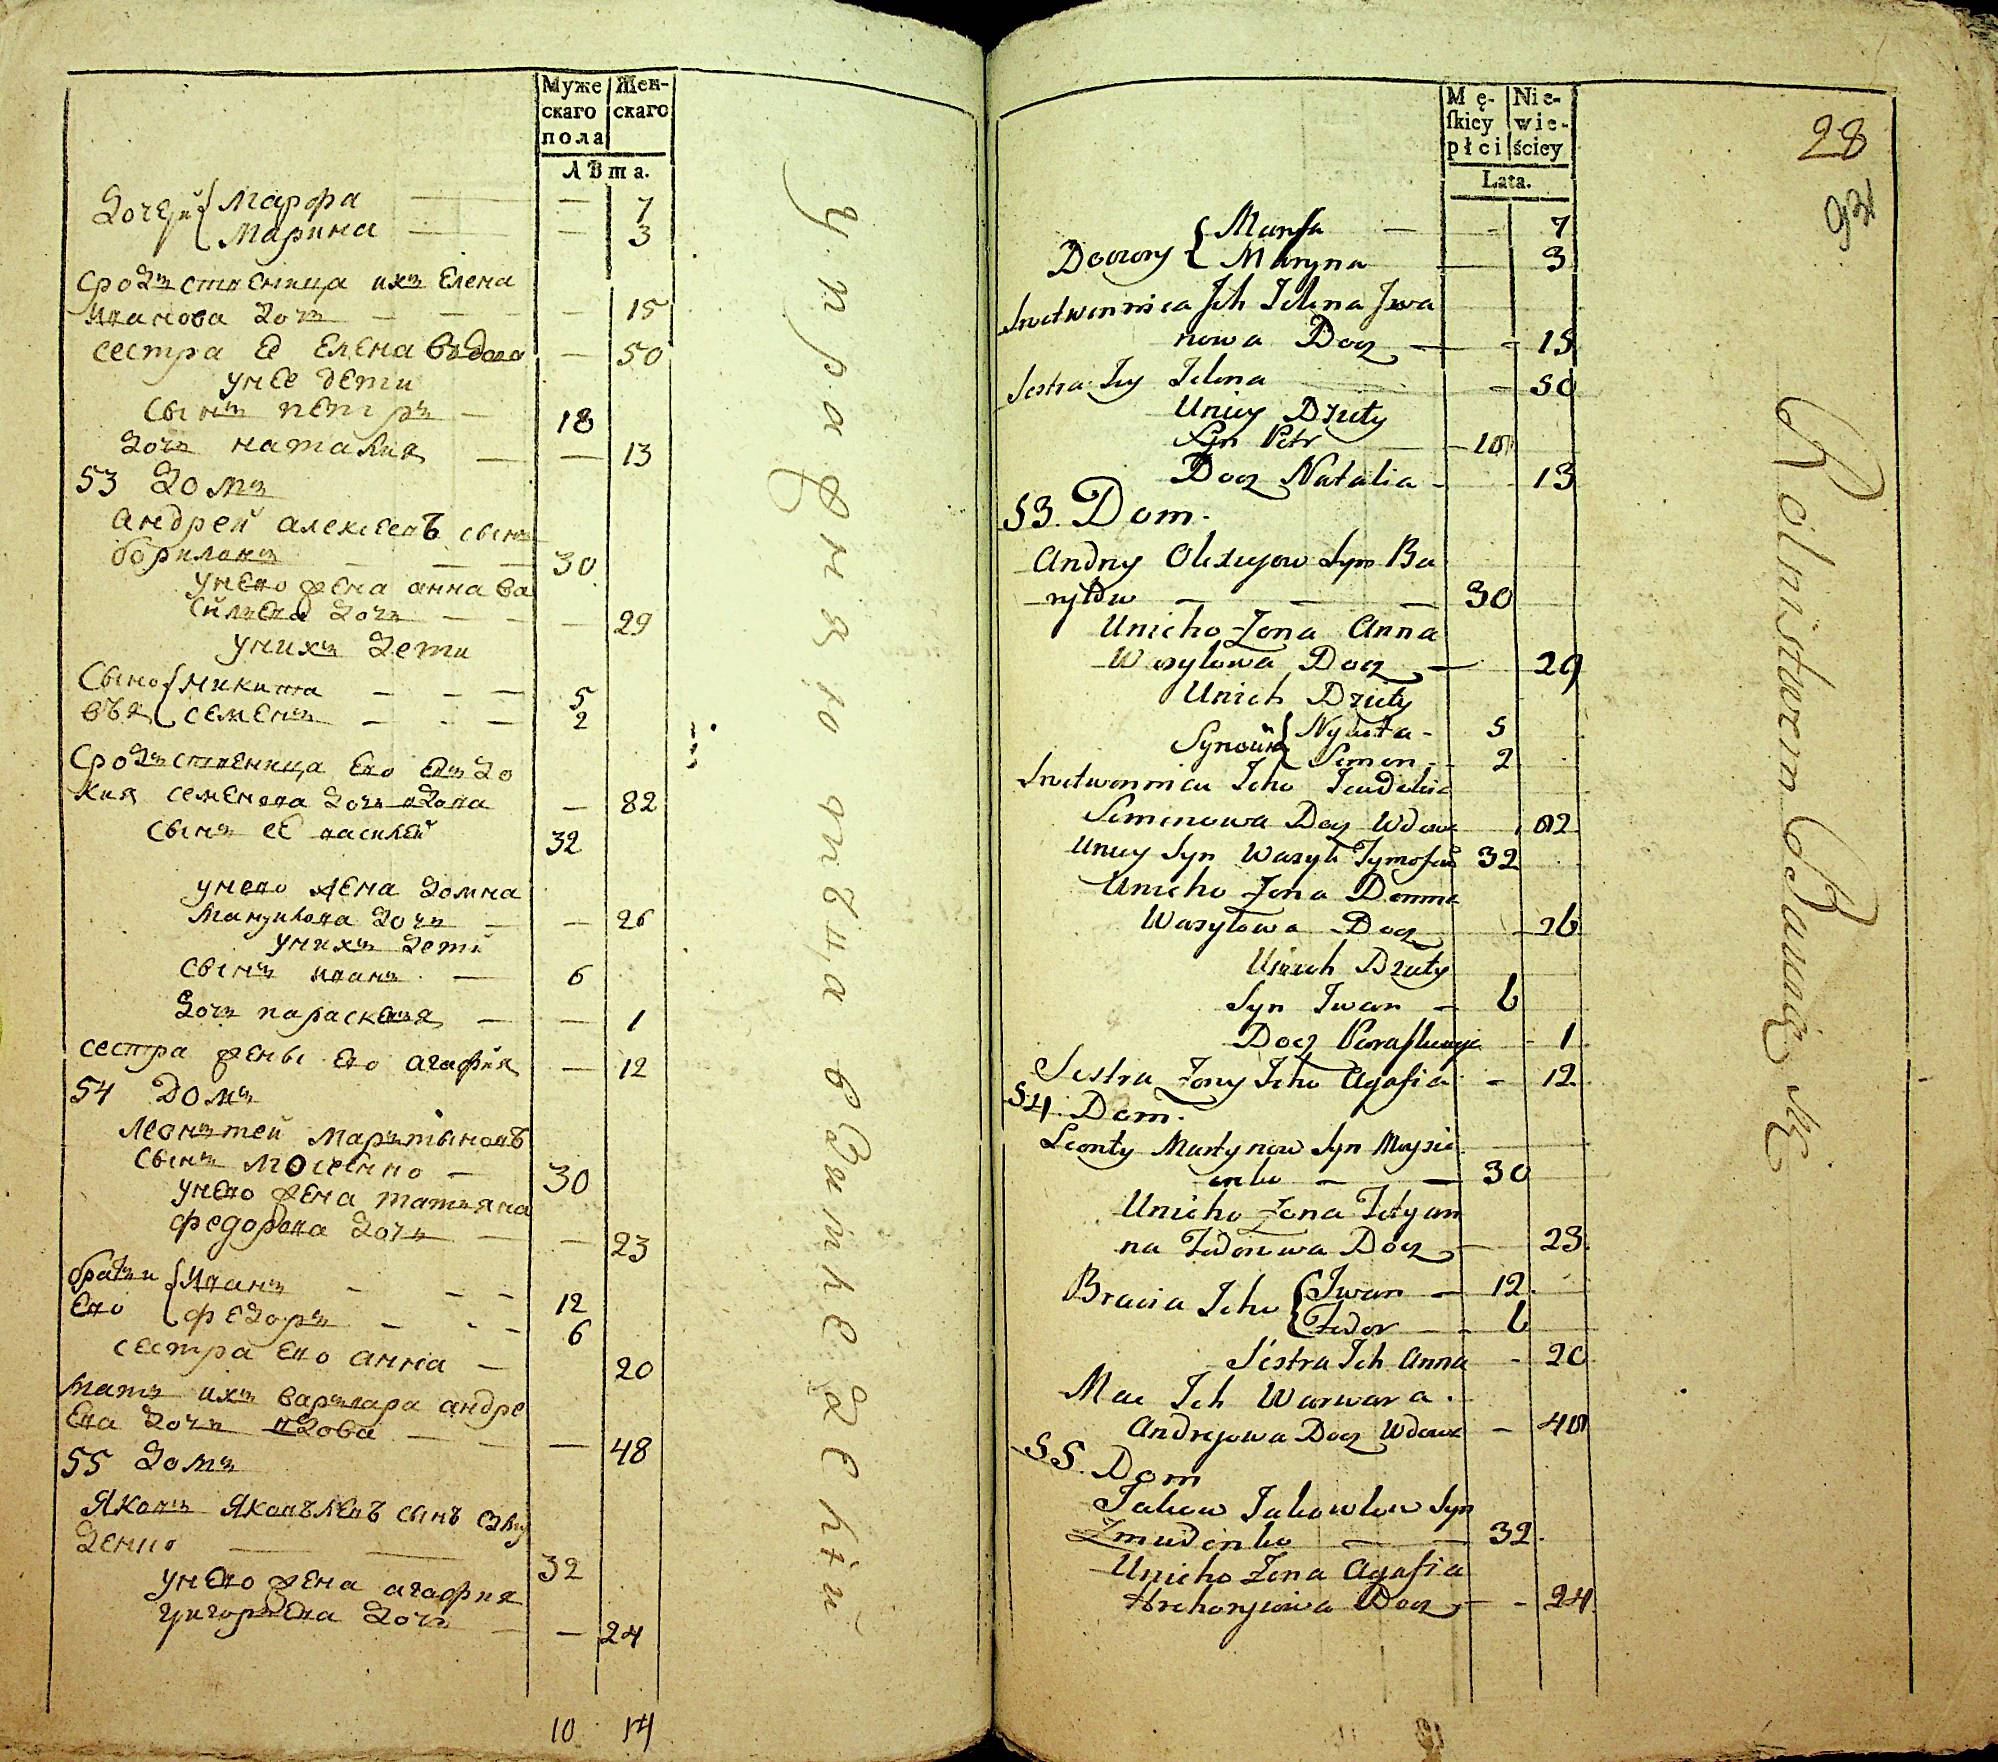 Муже
скаго
пола
Жен-
скаго
лѣта.
дочери { Марфа — — 7
Марина — — 3
сродъственица ихъ Елена
Иванова дочь — — 15
сестра её Елена вдова — 50
унее дети
сынъ петръ — 18
дочь наталия — — 13
53 домъ
андрей алексеевъ сынъ
бориловъ — — 30
унево жена анна ва
сильева дочь — — 29
унихъ дети
Сыно { микита — — 5
вья семенъ — — 2
Сродъственица ево евъдо
кия семенова дочь вдова — 82
сынъ её василей 32
унево жена домна
дочь — — 26
унихъ дети
сынъ иванъ — 6
дочь параскевия — — 1
сестра жены ево агафия — 12
54 домъ
леонтей мартыновъ
сынъ — 30
унево жена татьяна
федорова дочь — — 23
братьи { Иванъ — — 12
ево федоръ — — 6
сестра ево анна — 20
мать ихъ варвара андре
ева дочь вдова — — 48
55 домъ
Яковъ Яковълевъ сынъ
денко — — 32
унево жена агафия
григорьева дочь — — 24
10 14
Упражняются въ
Mę-
skiey
płci
Nie-
wie-
ściey
Lata.
28
Doczery { Marfa — - 7
Maryna — 3
Ich Jelena Iwa
nowa Docz — - 15
Sestra Iey Jelena - 50
Uniey Dziety
Syn Petr — 18
Docz Natalia - 13
53. Dom.
Andrey Olexiejow Syn Ba
ryłow — — — 30
Unieho Żona Anna
Wasylowa Docz — 29
Unich Dziety
Synowie { Nykita - 5
Semen - 2
Jeho
Semenowa Docz Wdowa 82
Uniey Syn Wasyl Tymofiew 32
Unieho Żona Domna
Wasylowa Docz 26
Unich Dziety
Syn Iwan — 6
Docz - 1
Sestra Żony Jeho Agafia - 12
54. Dom.
Leonty Martynow Syn Moysie
enko — — 30
Unieho Żona Tetyan
na Fedorowa Docz — 23.
Bracia Jeho { Iwan — 12.
Fedor — 6
Sestra Ich Anna - 20
Mac Ich Warwara.
Andrejowa Docz Wdowa — 48
55. Dom
Jakow Jakowlew Syn
Żmudenko — — 32.
Unieho Żona Agafia
Hrehoryiowa Docz — - 24.
Rolnistwem Bawią się